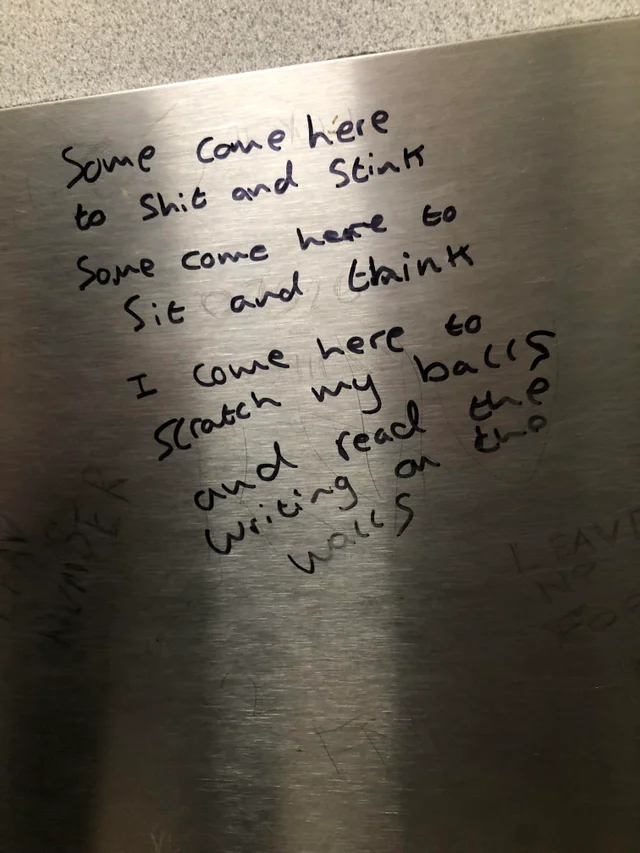 Some come here
to Shit and Stink
Some come here to
Sit and think
I come here to
Scratch my balls
and read the
writing on the
walls
LEAVE
NO